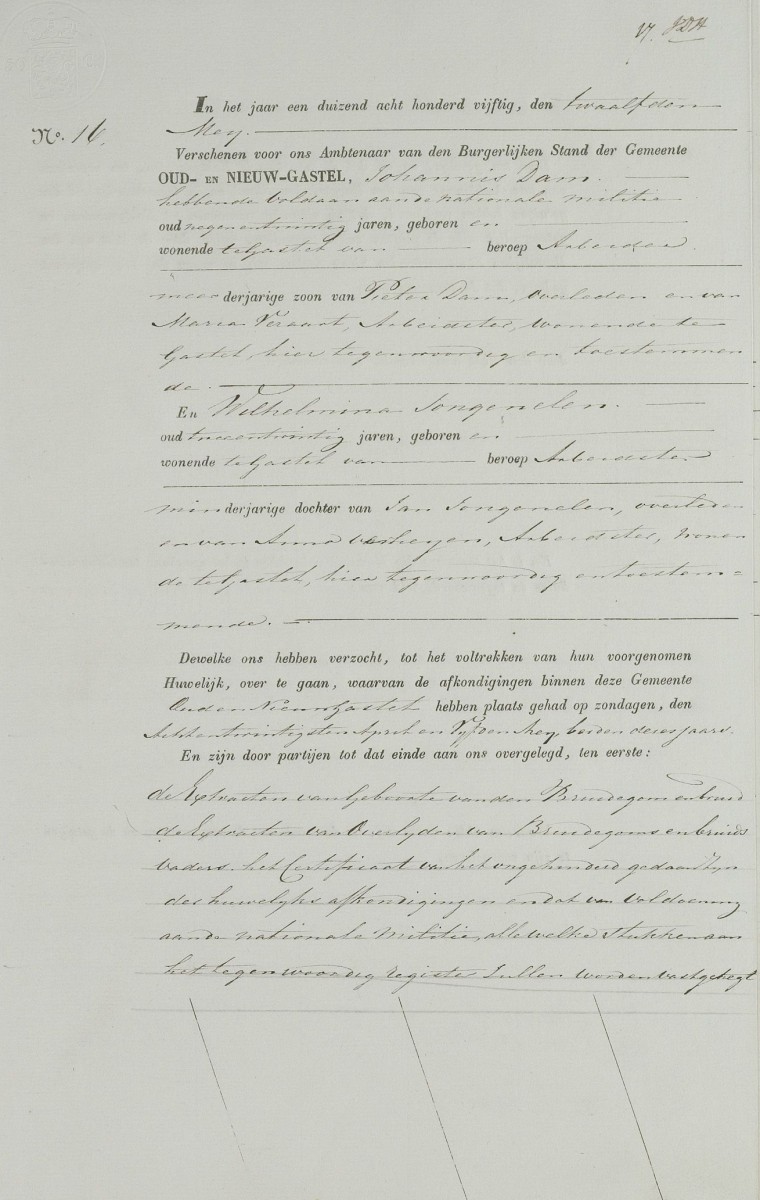 17.
In het jaar een duizend acht honderd vijftig, den twaalfden
No. 16.
Mey.
Verschenen voor ons Ambtenaar van den Burgerlijken Stand der Gemeente
OUD- EN NIEUW-GASTEL, Johannis Dam.
hebbende voldaan aan de nationale militie
oud negenentwintig jaren, geboren en
wonende te Gastel van beroep Arbeider.
meerderjarige zoon van Pieter Dam, overleden en van
Maria Veraart, Arbeidster, wonende te
Gastel, hier tegenwoordig en toestemmen
de.
En Wilhelmina Jongenelen.
oud tweeentwintig jaren, geboren en
wonende te Gastel van beroep Arbeidster
minderjarige dochter van Jan Jongenelen, overleden
en van Anna Verheyen, Arbeidster, wonen
de te Gastel, hier tegenwoordig en toestem=
mende.
Dewelke ons hebben verzocht, tot het voltrekken van hun voorgenomen
Huwelijk, over te gaan, waarvan de afkondigingen binnen deze Gemeente
Oud en Nieuw Gastel hebben plaats gehad op zondagen, den
Achtentwintigsten April en Vyfden Mey, beiden dezes jaars.
En zijn door partijen tot dat einde aan ons overgelegd, ten eerste:
de Extracten van Geboorte van den Bruidegom en bruid
de Extracten van Overlyden van Bruidegoms en bruids
vaders. het Certificaat van het ongehinderd gedaan zyn
des huwelyks afkondigingen en dat van voldoening
aan de nationale Militie, alle welke stukken aan
het tegenwoordig register zullen worden vastgehegt